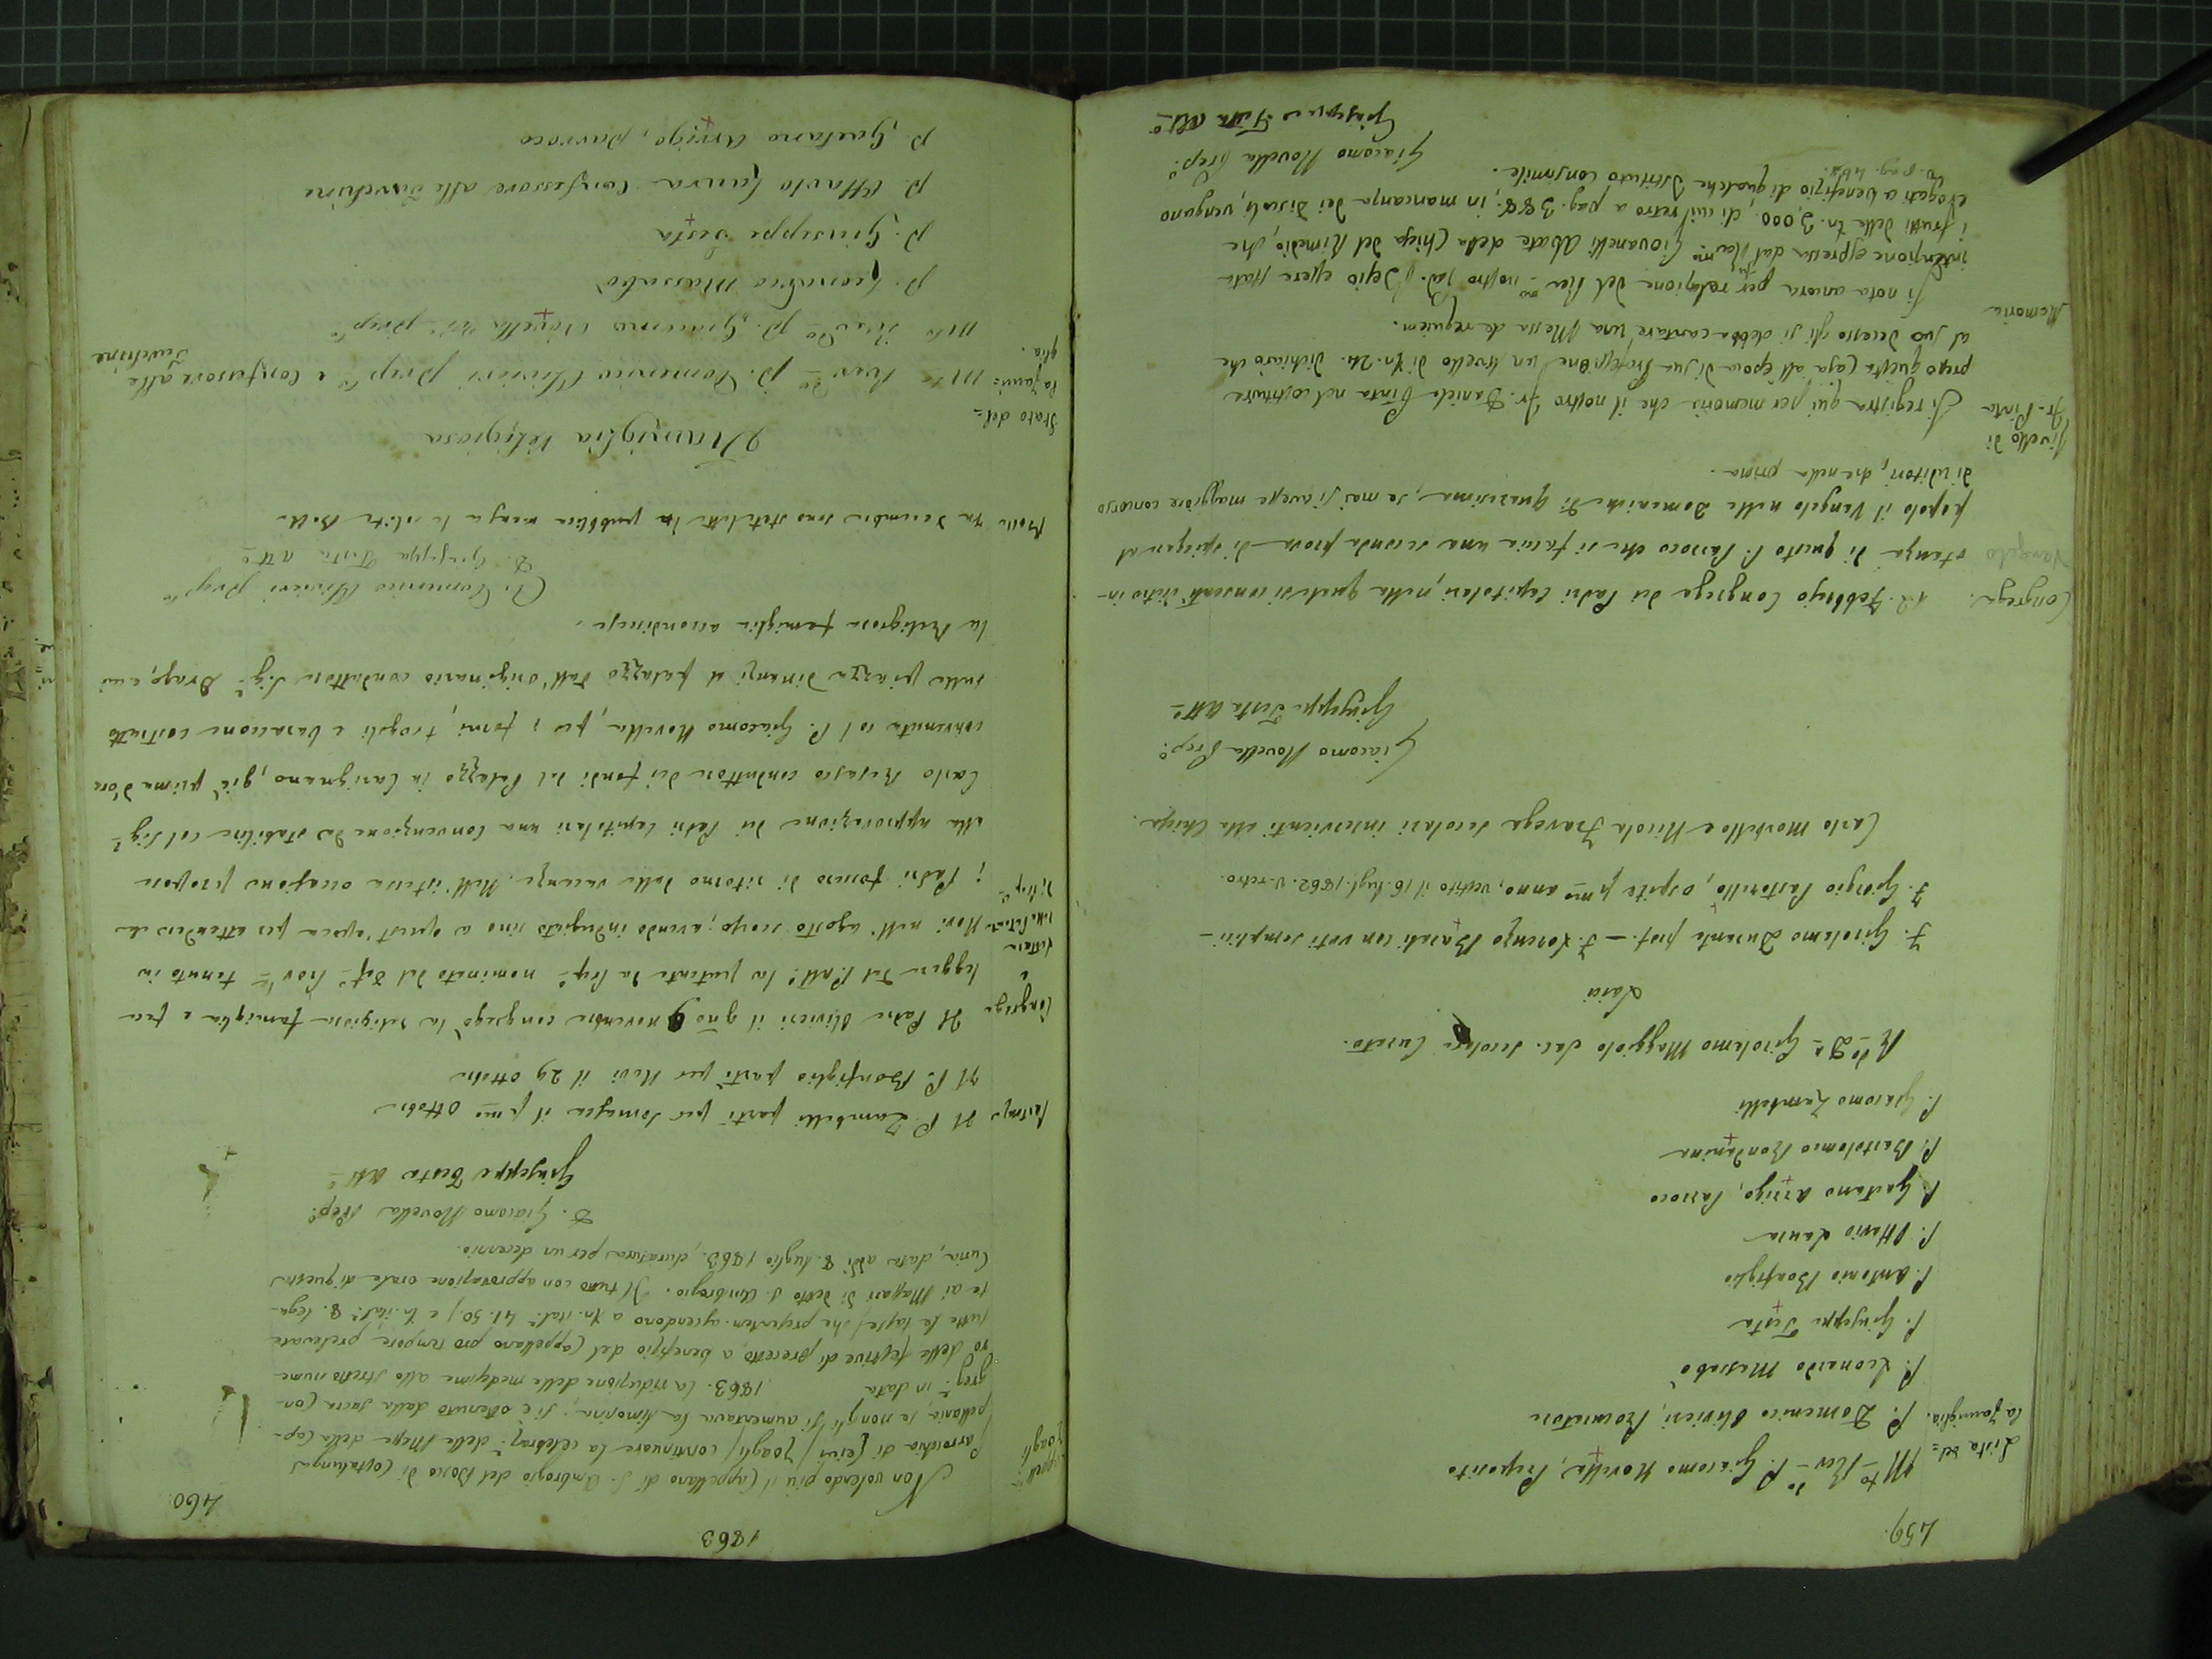 459.
Lista del=
la famiglia.
Mto Rev do P. Giacomo Novella, Preposito
P. Domenico Olivieri, Procuratore
P. Leonardo Massabò
P. Giuseppe Testa
P. Antonio Bonfiglio
P. Ottavio Laura
P. Gaetano Arrigo, Parroco
P. Bartolomeo Bondanina
P. Giacomo Zambelli
R do D. Girolamo Maggiolo sac. secolare Curato.
Laici
F. Girolamo Durante prof. — F. Lorenzo Basali con voti semplici —
F. Giorgio Pastorello, ospite pmo anno, vestito il 16. lugl. 1862. v. retro.
Carlo Morbello e Nicola Travega secolari inservienti alla Chiesa.
Giacomo Novella Prep.o
Giuseppe Testa Att.o
Congrega.
Vangelo
12. Febbrajo Congrega dei Padri Capitolari, nella quale si consentì dietro in-
stanza di questo P. Parroco che si faccia una seconda prova di spiegare al
popolo il Vangelo nelle Domeniche di Quaresima, se mai si avesse maggiore concorso
di uditori, che nella prima.
Livello di
Fr. Pinta
Si registra qui per memoria che il nostro Fr. Daniele Pinta nel costituire
presso questa Casa all'epoca di sua Professione un livello di Ln. 24. dichiarò che
al suo decesso gli si debba cantare una Messa de requiem.
Memoria
Si nota ancora per relazione del Rev.mo nostro Pad. Segio essere stata
intenzione espressa dal fu Rev.mo Giovanelli Abate della Chiesa del Rimedio, che
i frutti delle Ln. 3,000. di cui retro a pag. 388. in mancanza dei Discoli, vengano
erogati a benefizio di qualche Istituto consimile.
V. pag. 462.
Giacomo Novella Prep.o
Giuseppe Testa Att.o
1863
460.
Cappell.a
Zoagli
Non volendo più il Cappellano di S. Ambrogio del Bosco di Costalunga
Parrochia di Leivi (Zoagli) continuare la celebraz.e delle Messe della Cap-
pellania, se non gli si aumentava la limosina; si è ottenuto dalla sacra Con-
greg.e in data 1863. la riduzione delle medesime allo stretto nume-
ro delle festive di precetto, a benefizio del Cappellano pro tempore prelevate
tutte le tasse (che presentem. ascendono a Ln. ital.e 41. 50) e Ln. ital.e 8. lega-
te ai Massari di detto S. Ambrogio. Il tutto con approvazione orale di questa
Curia, data alli 8. luglio 1863, duratura per un decennio.
D. Giacomo Novella Prep.o
Giuseppe Testa Att.o
Partenze
Il P. Zambelli partì per Somasca il pmo Ottobre
Il P. Bonfiglio partì per Novi il 29 ottobre
Congrega
e
lettura
della Patente
di Prep.o
Il Padre Olivieri il giorno 9 novembre congregò la religiosa famiglia e fece
leggere dal P. Att.o la patente da Prep.o nominato dal Def.o Prov.le tenuto in
Novi nell'agosto scorso; avendo indugiato sino a quest'epoca per attendere che
i Padri fossero di ritorno dalle vacanze. Nell'istessa occasione propose
alla approvazione dei Padri Capitolari una Convenzione da stabilire col Sig.r
Carlo Bisasco conduttore dei fondi del Palazzo in Carignano, già prima d'ora
convenuta col P. Giacomo Novella, per i forni, trogoli e baraccone costrutto
sulla piazza dinanzi al palazzo dall'originario conduttore Sig.r Drago, a cui
la Religiosa famiglia accondiscese.
D. Domenico Olivieri prep.to
D. Giuseppe Testa att.o
Bolle
In decembre sono state lette in pubblica mensa le solite Bolle
Famiglia Religiosa
Stato del=
la fami=
glia.
Mto Rev do P. Domenico Olivieri Prep.to e Confessore alle
Turchine
Mto Rev do P. Giacomo Novella vice prep.to
P. Leonardo Massabò
P. Giuseppe Testa
P. Ottavio Laura Confessore alle Turchine
P. Gaetano Arrigo, parroco